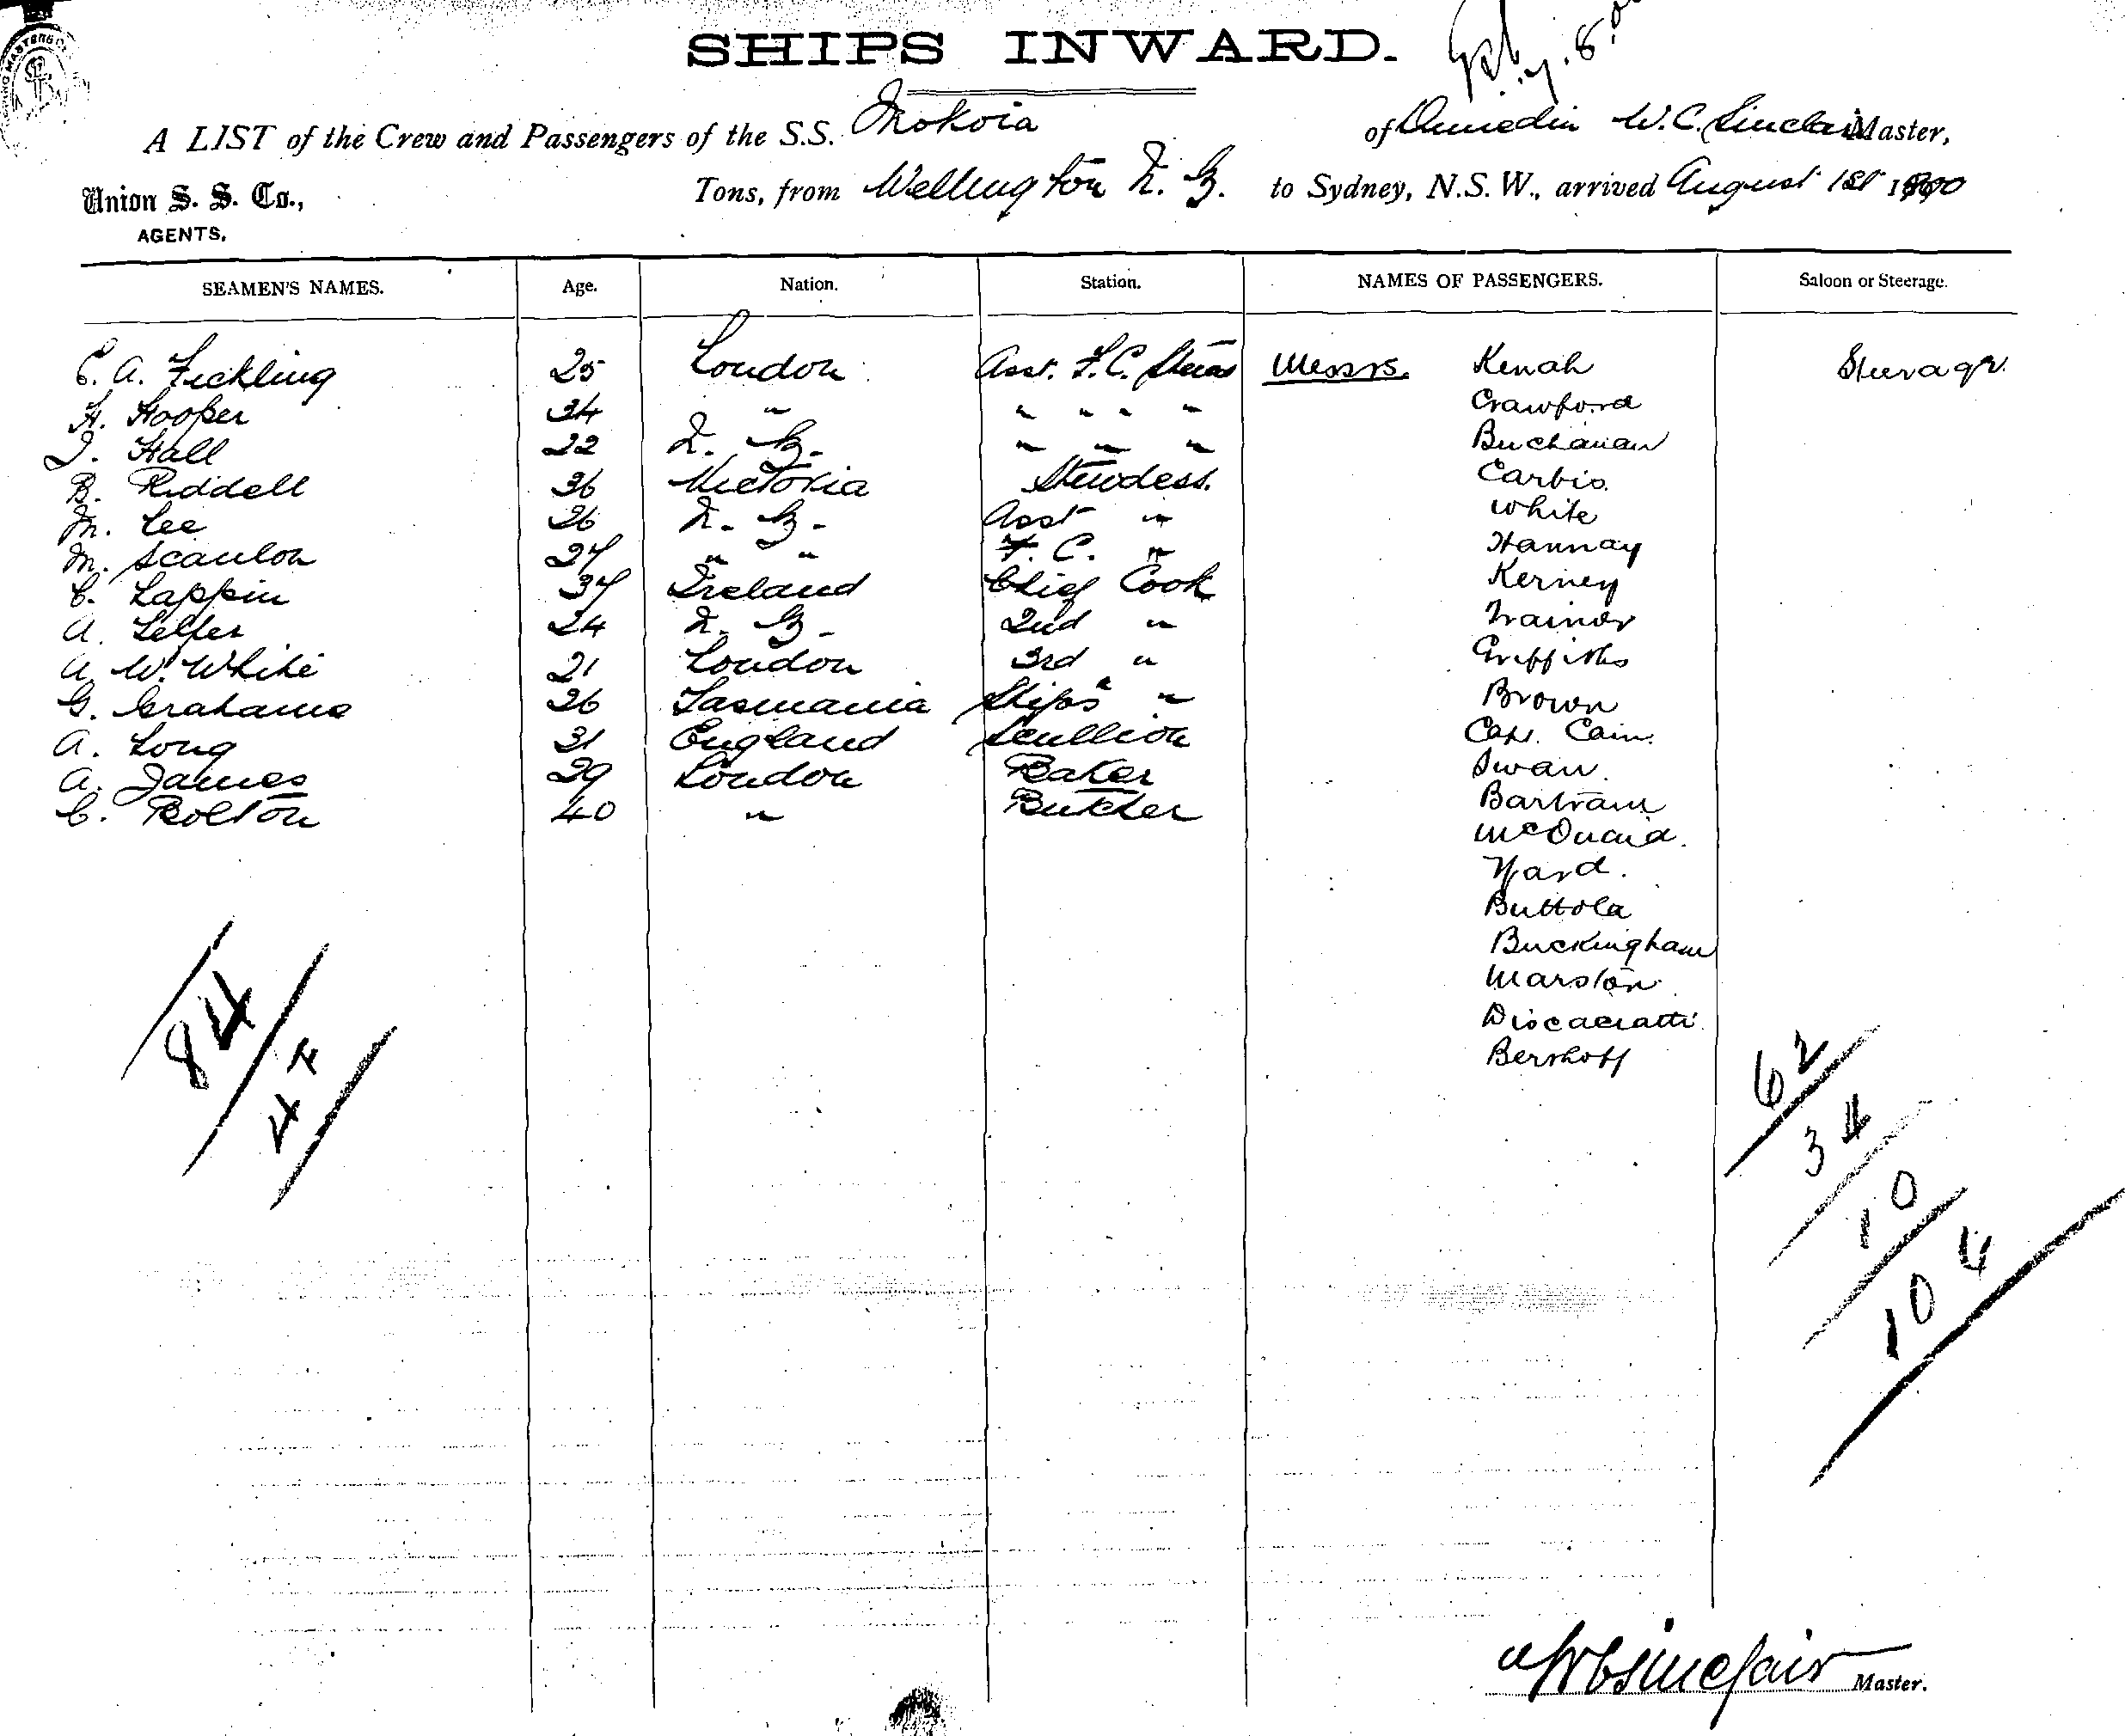 SHIPS INWARD.
A LIST of the Crew and Passengers of the S.S. Mokoia of Dunedin W. C. Sinclair Master,
Union S. S. Co., Tons, from Wellington N. Z. to Sydney, N.S.W., arrived August 1st 1900
AGENTS.
SEAMEN'S NAMES. Age. Nation. Station. NAMES OF PASSENGERS. Saloon or Steerage.
E. A. Fickling 25 London Asst. F. C. Messrs. Kenah Steerage.
H. Hooper 34 " " " " " Crawford
J. Hall 22 N. Z. " " " Buchanan
B. Riddell 36 Victoria Stewdess. Carbis.
M. Lee 26 N. Z. Asst " White
M. Scanlon 27 " " F. C. " Hannay
C. Lappin 37 Ireland Chief Cook Kerney
A. Telfer 24 N. Z. 2nd " Trainor
A. W. White 21 London 3rd " Griffiths
G. Grahame 26 Tasmania Ships " Brown
A. Long 31 England Scullion Capt. Cain.
A. James 29 London Baker Swan.
C. Bolton 40 " Butcher Bartram
McQuaid.
Yard.
Buttola
Buckingham
Marston
Discaciatti.
Bershoff
84
44
62
34
10
104
W C Sinclair Master.